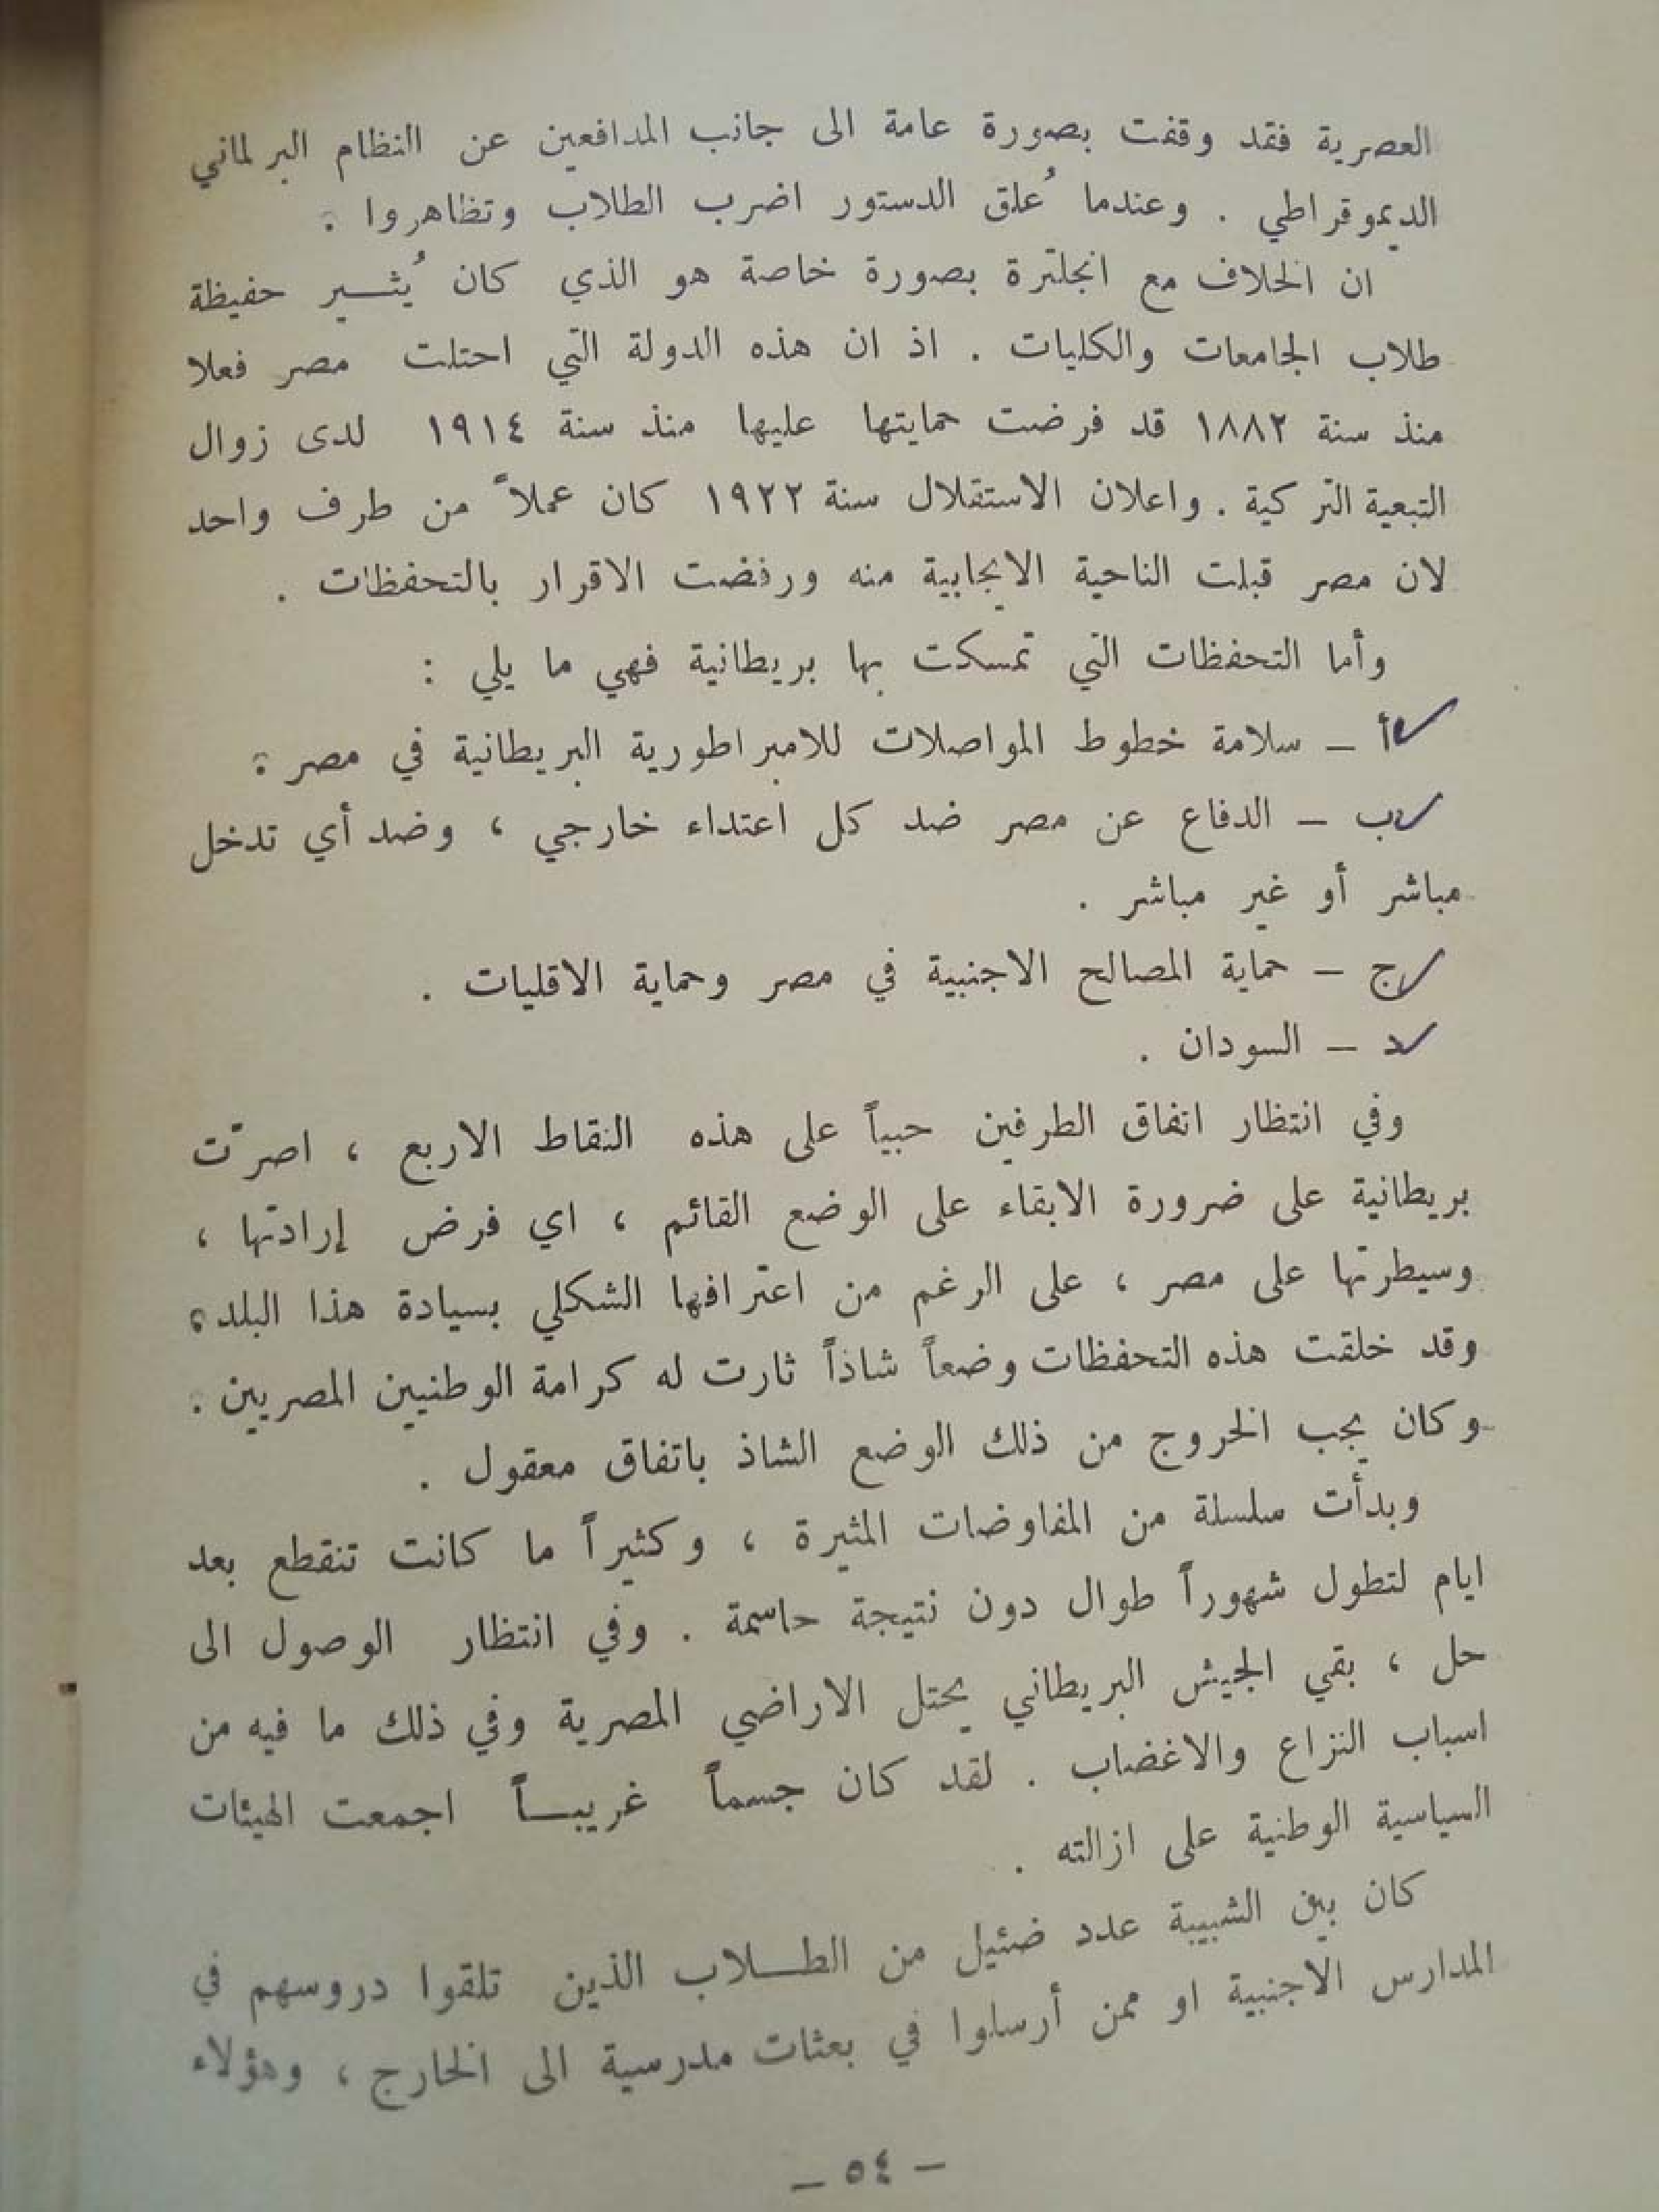 العصرية فقد وقفت بصورة عامة الى جانب المدافعين عن النظام البرلماني
الديموقراطي . وعندما عُلق الدستور اضرب الطلاب وتظاهروا .
ان الخلاف مع انجلترة بصورة خاصة هو الذي كان يُثـــير حفيظة
طلاب الجامعات والكليات . اذ ان هذه الدولة التي احتلت مصر فعلا
منذ سنة ١٨٨٢ قد فرضت حمايتها عليها منذ سنة ١٩١٤ لدى زوال
التبعية التركية . واعلان الاستقلال سنة ١٩٢٢ كان عملاً من طرف واحد
لان مصر قبلت الناحية الايجابية منه ورفضت الاقرار بالتحفظات .
وأما التحفظات التي تمسكت بها بريطانية فهي ما يلي :
أ – سلامة خطوط المواصلات للامبراطورية البريطانية في مصر .
ب – الدفاع عن مصر ضد كل اعتداء خارجي ، وضد أي تدخل
مباشر أو غير مباشر .
ج – حماية المصالح الاجنبية في مصر وحماية الاقليات .
د – السودان .
وفي انتظار اتفاق الطرفين حبياً على هذه النقاط الاربع ، اصرّت
بريطانية على ضرورة الابقاء على الوضع القائم ، اي فرض إرادتها ،
وسيطرتها على مصر ، على الرغم من اعترافها الشكلي بسيادة هذا البلد .
وقد خلقت هذه التحفظات وضعاً شاذاً ثارت له كرامة الوطنيين المصريين .
وكان يجب الخروج من ذلك الوضع الشاذ باتفاق معقول .
وبدأت سلسلة من المفاوضات المثيرة ، وكثيراً ما كانت تنقطع بعد
ايام لتطول شهوراً طوال دون نتيجة حاسمة . وفي انتظار الوصول الى
حل ، بقي الجيش البريطاني يحتل الاراضي المصرية وفي ذلك ما فيه من
اسباب النزاع والاغضاب . لقد كان جسماً غريبـــاً اجمعت الهيئات
السياسية الوطنية على ازالته .
كان بين الشبيبة عدد ضئيل من الطـــلاب الذين تلقوا دروسهم في
المدارس الاجنبية او ممن أرسلوا في بعثات مدرسية الى الخارج ، وهؤلاء
– ٥٤ –